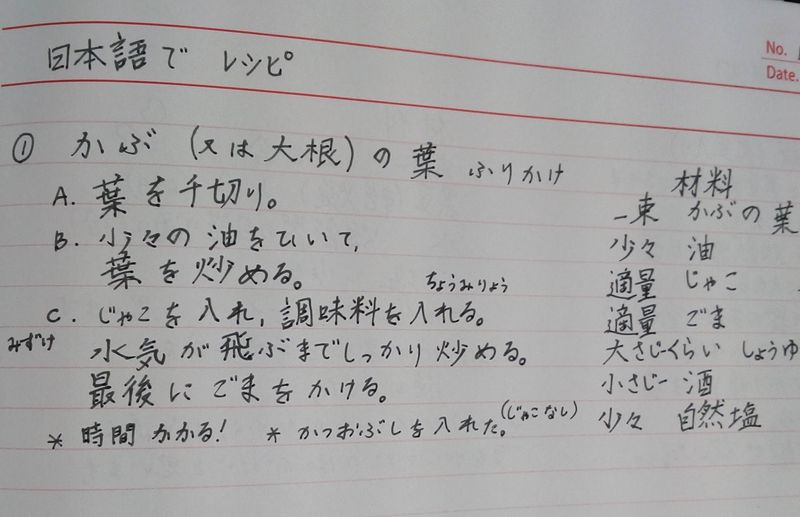 No.
Date.
日本語で レシピ
① かぶ (又は大根)の葉 ふりかけ
A. 葉を千切り。
B. 少々の油をひいて、
葉を炒める。
ちょうみりょう
C. じゃこを入れ、調味料を入れる。
みずけ
水気が飛ぶまでしっかり炒める。
最後にごまをかける。
* 時間かかる! * かつおぶしを入れた。(じゃこなし)
材料
一束 かぶの葉
少々 油
適量 じゃこ
適量 ごま
大さじ一くらい しょうゆ
小さじ一 酒
少々 自然塩